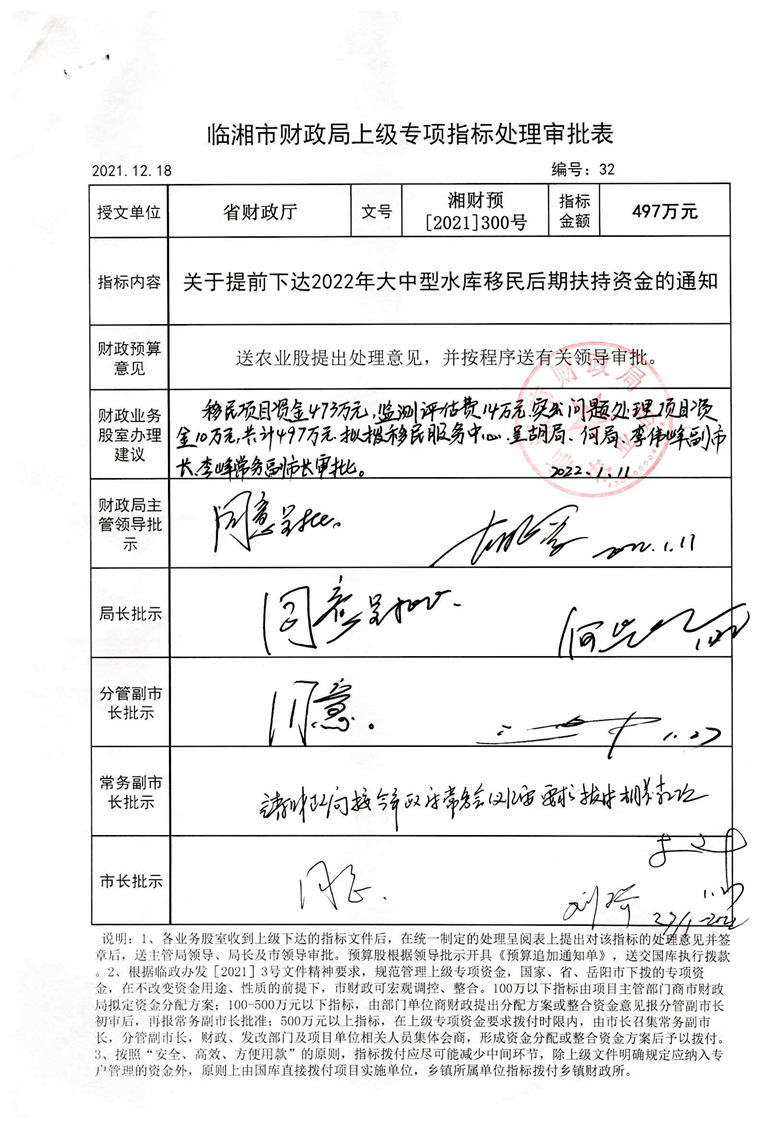 临湘市财政局上级专项指标处理审批表
2021.12.18 编号：32
授文单位 省财政厅 文号 湘财预[2021]300号 指标金额 497万元
指标内容 关于提前下达2022年大中型水库移民后期扶持资金的通知
财政预算意见 送农业股提出处理意见，并按程序送有关领导审批。
财政业务股室办理建议
移民项目资金473万元，监测评估费14万元，突出问题处理项目资
金10万元，共计497万元，拟拨移民服务中心，呈胡局、何局、李伟峰副市
长、李峰常务副市长审批。 2022.1.11
财政局主管领导批示 同意呈批。 2022.1.11
局长批示 同意呈批。
分管副市长批示 同意。 1.27
常务副市长批示 请财政局按今年政府常务会议纪要要求拨付相关款项
市长批示 同意。
说明：1、各业务股室收到上级下达的指标文件后，在统一制定的处理呈阅表上提出对该指标的处理意见并签
章后，送主管局领导、局长及市领导审批。预算股根据领导批示开具《预算追加通知单》，送交国库执行拨款
。2、根据临政办发［2021］3号文件精神要求，规范管理上级专项资金，国家、省、岳阳市下拨的专项资
金，在不改变资金用途、性质的前提下，市财政可宏观调控、整合。100万以下指标由项目主管部门商市财政
局拟定资金分配方案；100-500万元以下指标，由部门单位商财政提出分配方案或整合资金意见报分管副市长
初审后，再报常务副市长批准；500万元以上指标，在上级专项资金要求拨付时限内，由市长召集常务副市
长，分管副市长，财政、发改部门及项目单位相关人员集体会商，形成资金分配或整合资金方案后予以拨付。
3、按照“安全、高效、方便用款”的原则，指标拨付应尽可能减少中间环节，除上级文件明确规定应纳入专
户管理的资金外，原则上由国库直接拨付项目实施单位，乡镇所属单位指标拨付乡镇财政所。